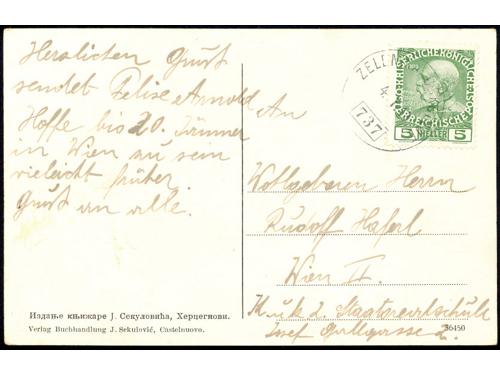 Herzlichen Gruß
sendet Felise Arnold
Hoffe bis 20. Jänner
in Wien zu sein
vieleicht früher
Gruß an alle.
Издање књижаре Ј. Секуловића, Херцегнови.
Verlag Buchhandlung J. Sekulović, Castelnuovo.
ZELEN
4
737
KAISERLICHE KÖNIGLICHE
ÖSTERREICHISCHE
5 HELLER 5
An
Wohlgeboren Herrn
Rudolf Haferl
Wien II.
K. u. k. 2. Staatsrealschule
Josef Gallgasse 2.
36450